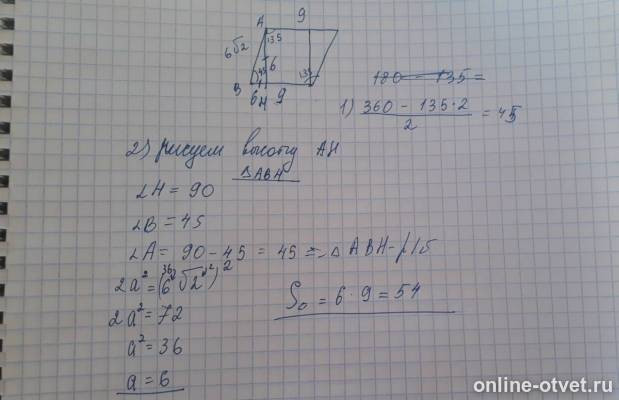 A 9
6√2 135
45 6 135
B 6 H 9
180 - 135 =
1) 360 - 135·2 / 2 = 45
2) рисуем высоту AH
ΔABH
∠H = 90
∠B = 45
∠A = 90 - 45 = 45 => ΔABH - р/б
2a² = (6√2)²
2a² = 72
a² = 36
a = 6
S₀ = 6·9 = 54
online-otvet.ru